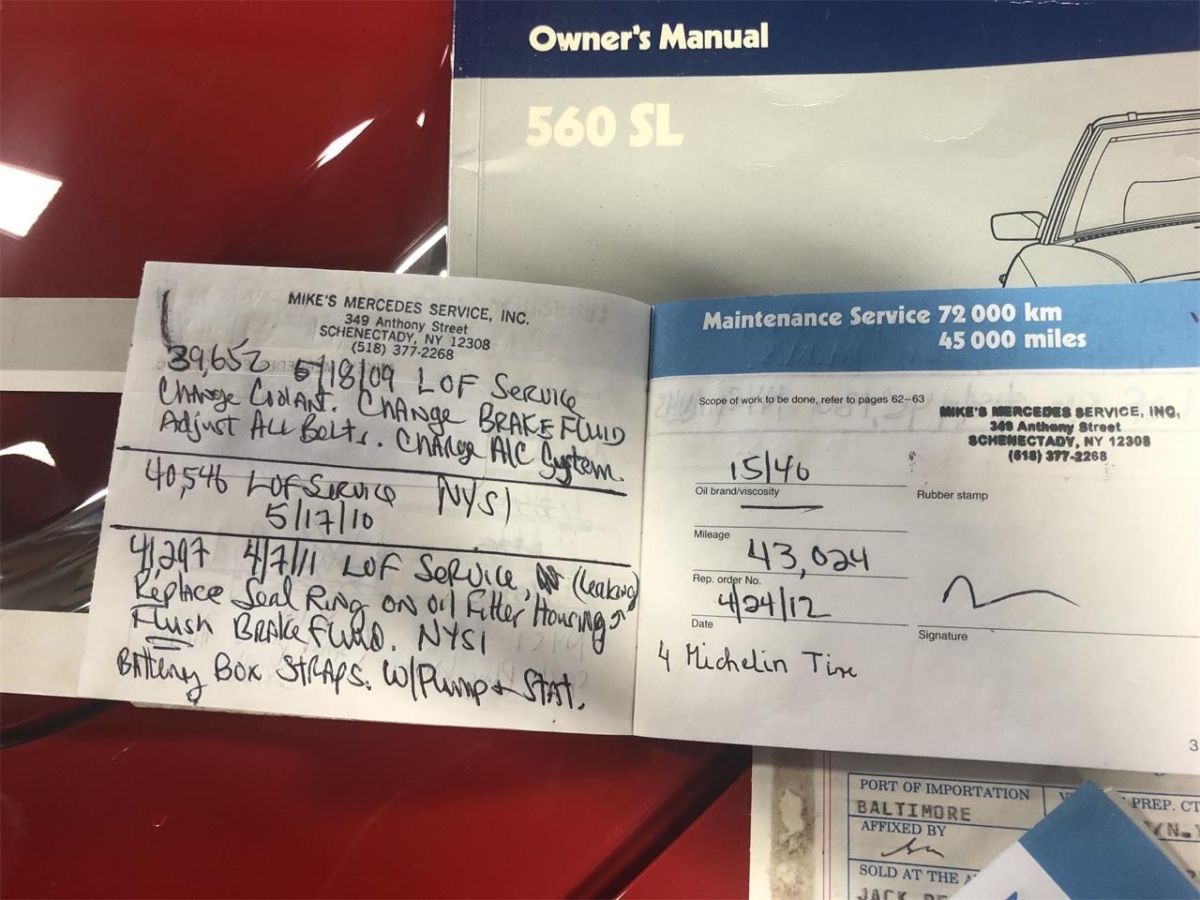 Owner's Manual
560 SL
MIKE'S MERCEDES SERVICE, INC.
349 Anthony Street
SCHENECTADY, NY 12308
(518) 377-2268
39,652 5/18/09 LOF SERVICE
CHANGE COOLANT. CHANGE BRAKE FLUID
Adjust ALL BOLTS. CHARGE A/C System.
40,546 LOF SERVICE NYSI
5/17/10
41,297 4/7/11 LOF SERVICE, (leaking)
Replace Seal Ring ON Oil Filter Housing
Flush BRAKE FLUID. NYSI
Battery Box STRAPS. W/Pump + STAT.
Maintenance Service 72 000 km
45 000 miles
Scope of work to be done, refer to pages 62–63
MIKE'S MERCEDES SERVICE, INC,
349 Anthony Street
SCHENECTADY, NY 12308
(518) 377-2268
15/40
Oil brand/viscosity
Rubber stamp
Mileage
43,024
Rep. order No.
4/24/12
Date
Signature
4 Michelin Tire
3
PORT OF IMPORTATION
BALTIMORE
PREP. CT
AFFIXED BY
SOLD AT THE
JACK